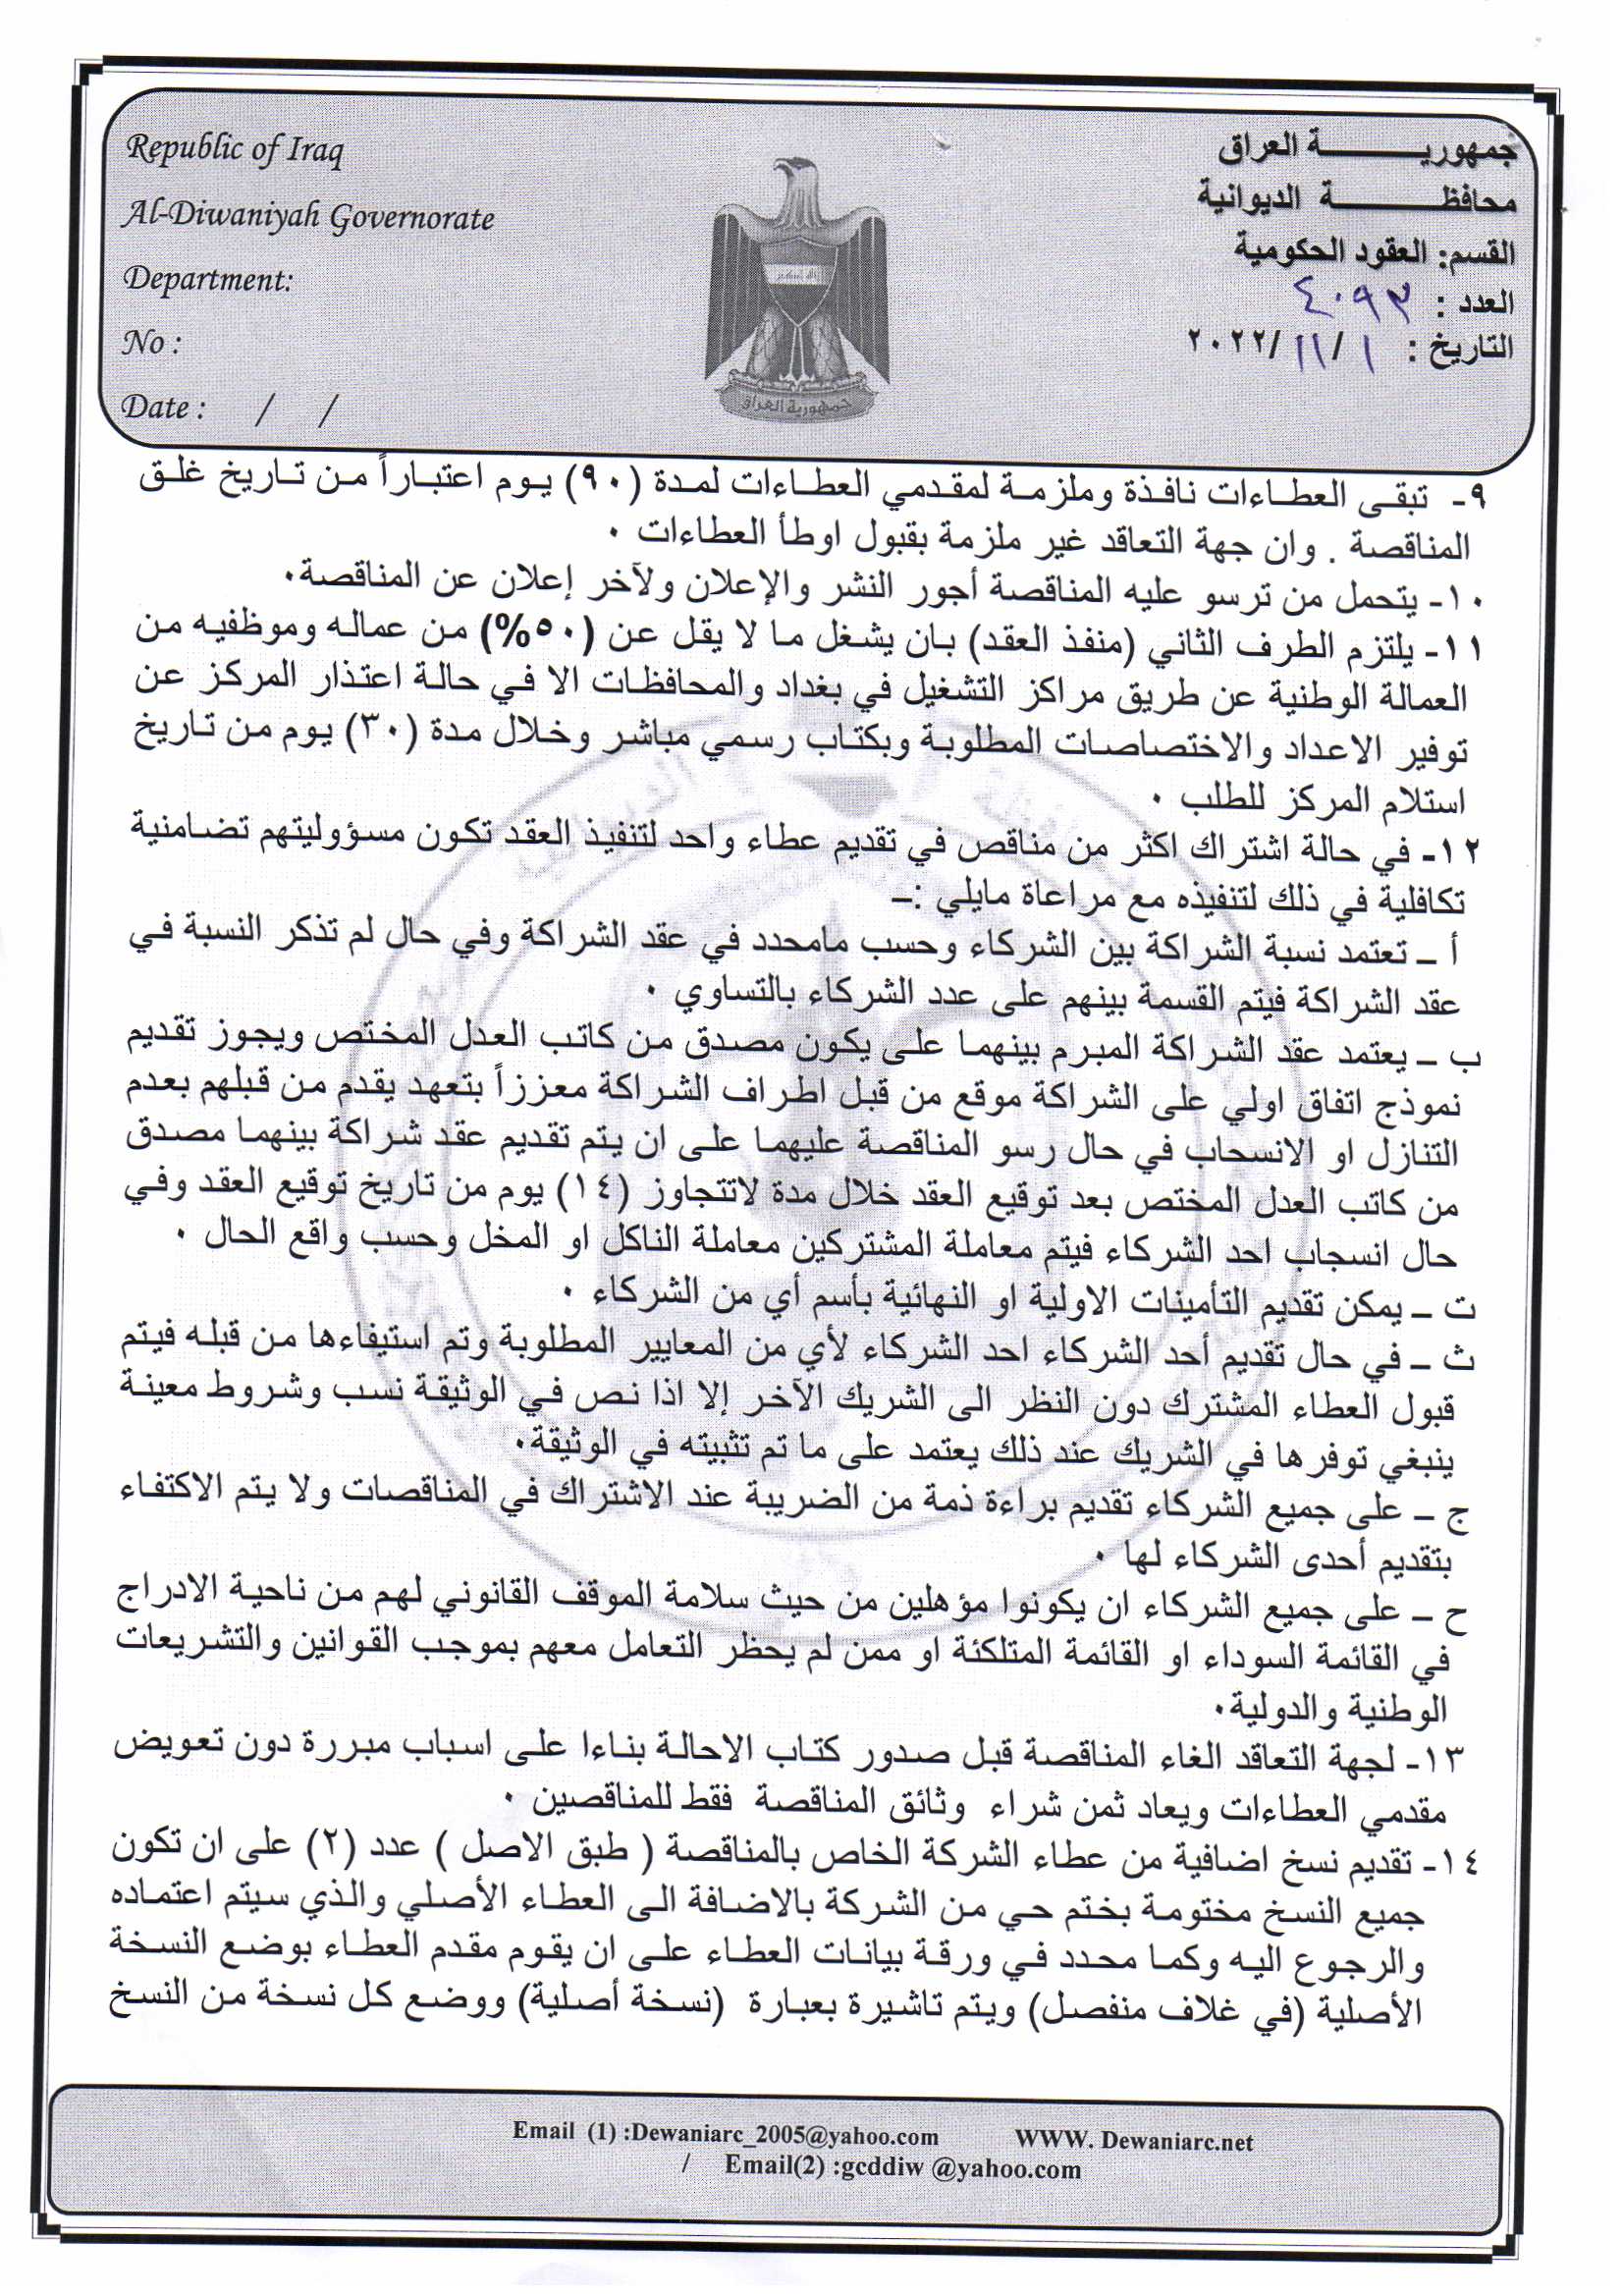 Republic of Iraq
Al-Diwaniyah Governorate
Department:
No :
Date :      /      /
جمهورية العراق
محافظة الديوانية
القسم: العقود الحكومية
العدد : ٤٠٩٣
التاريخ : ١ / ١١ /٢٠٢٢
جمهورية العراق
٩- تبقى العطاءات نافذة وملزمة لمقدمي العطاءات لمدة (٩٠) يوم اعتباراً من تاريخ غلق
المناقصة . وان جهة التعاقد غير ملزمة بقبول اوطأ العطاءات ٠
١٠- يتحمل من ترسو عليه المناقصة أجور النشر والإعلان ولآخر إعلان عن المناقصة٠
١١- يلتزم الطرف الثاني (منفذ العقد) بان يشغل ما لا يقل عن (٥٠%) من عماله وموظفيه من
العمالة الوطنية عن طريق مراكز التشغيل في بغداد والمحافظات الا في حالة اعتذار المركز عن
توفير الاعداد والاختصاصات المطلوبة وبكتاب رسمي مباشر وخلال مدة (٣٠) يوم من تاريخ
استلام المركز للطلب ٠
١٢- في حالة اشتراك اكثر من مناقص في تقديم عطاء واحد لتنفيذ العقد تكون مسؤوليتهم تضامنية
تكافلية في ذلك لتنفيذه مع مراعاة مايلي :ـ
أ ـ تعتمد نسبة الشراكة بين الشركاء وحسب مامحدد في عقد الشراكة وفي حال لم تذكر النسبة في
عقد الشراكة فيتم القسمة بينهم على عدد الشركاء بالتساوي ٠
ب ـ يعتمد عقد الشراكة المبرم بينهما على يكون مصدق من كاتب العدل المختص ويجوز تقديم
نموذج اتفاق اولي على الشراكة موقع من قبل اطراف الشراكة معززاً بتعهد يقدم من قبلهم بعدم
التنازل او الانسحاب في حال رسو المناقصة عليهما على ان يتم تقديم عقد شراكة بينهما مصدق
من كاتب العدل المختص بعد توقيع العقد خلال مدة لاتتجاوز (١٤) يوم من تاريخ توقيع العقد وفي
حال انسجاب احد الشركاء فيتم معاملة المشتركين معاملة الناكل او المخل وحسب واقع الحال ٠
ت ـ يمكن تقديم التأمينات الاولية او النهائية بأسم أي من الشركاء ٠
ث ـ في حال تقديم أحد الشركاء احد الشركاء لأي من المعايير المطلوبة وتم استيفاءها من قبله فيتم
قبول العطاء المشترك دون النظر الى الشريك الآخر إلا اذا نص في الوثيقة نسب وشروط معينة
ينبغي توفرها في الشريك عند ذلك يعتمد على ما تم تثبيته في الوثيقة٠
ج ـ على جميع الشركاء تقديم براءة ذمة من الضريبة عند الاشتراك في المناقصات ولا يتم الاكتفاء
بتقديم أحدى الشركاء لها ٠
ح ـ على جميع الشركاء ان يكونوا مؤهلين من حيث سلامة الموقف القانوني لهم من ناحية الادراج
في القائمة السوداء او القائمة المتلكئة او ممن لم يحظر التعامل معهم بموجب القوانين والتشريعات
الوطنية والدولية٠
١٣- لجهة التعاقد الغاء المناقصة قبل صدور كتاب الاحالة بناءا على اسباب مبررة دون تعويض
مقدمي العطاءات ويعاد ثمن شراء وثائق المناقصة فقط للمناقصين ٠
١٤- تقديم نسخ اضافية من عطاء الشركة الخاص بالمناقصة ( طبق الاصل ) عدد (٢) على ان تكون
جميع النسخ مختومة بختم حي من الشركة بالاضافة الى العطاء الأصلي والذي سيتم اعتماده
والرجوع اليه وكما محدد في ورقة بيانات العطاء على ان يقوم مقدم العطاء بوضع النسخة
الأصلية (في غلاف منفصل) ويتم تاشيرة بعبارة (نسخة أصلية) ووضع كل نسخة من النسخ
Email (1) :Dewaniarc_2005@yahoo.com          WWW. Dewaniarc.net
/ Email(2) :gcddiw @yahoo.com